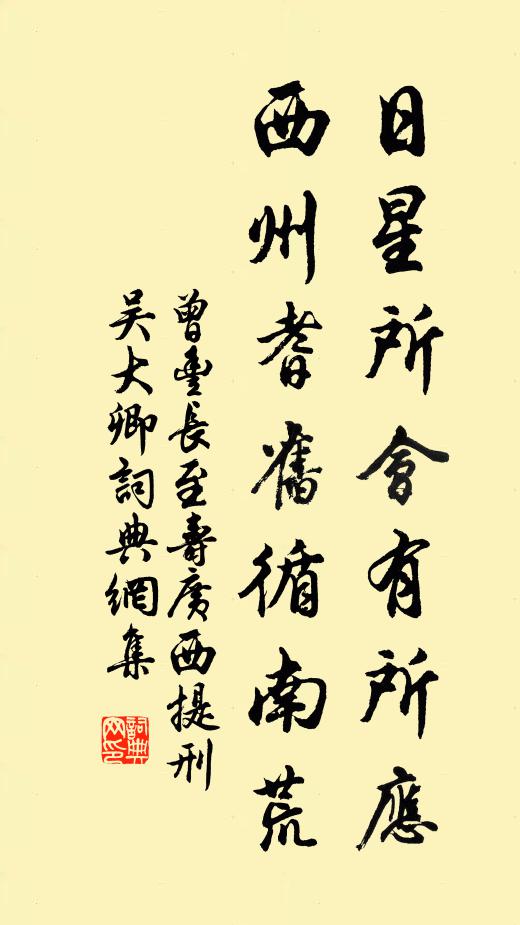 日星所會有所應
西州耆舊循南荒
曾豐長至壽廣西提刑
吴大卿詞典網集
詞典网印